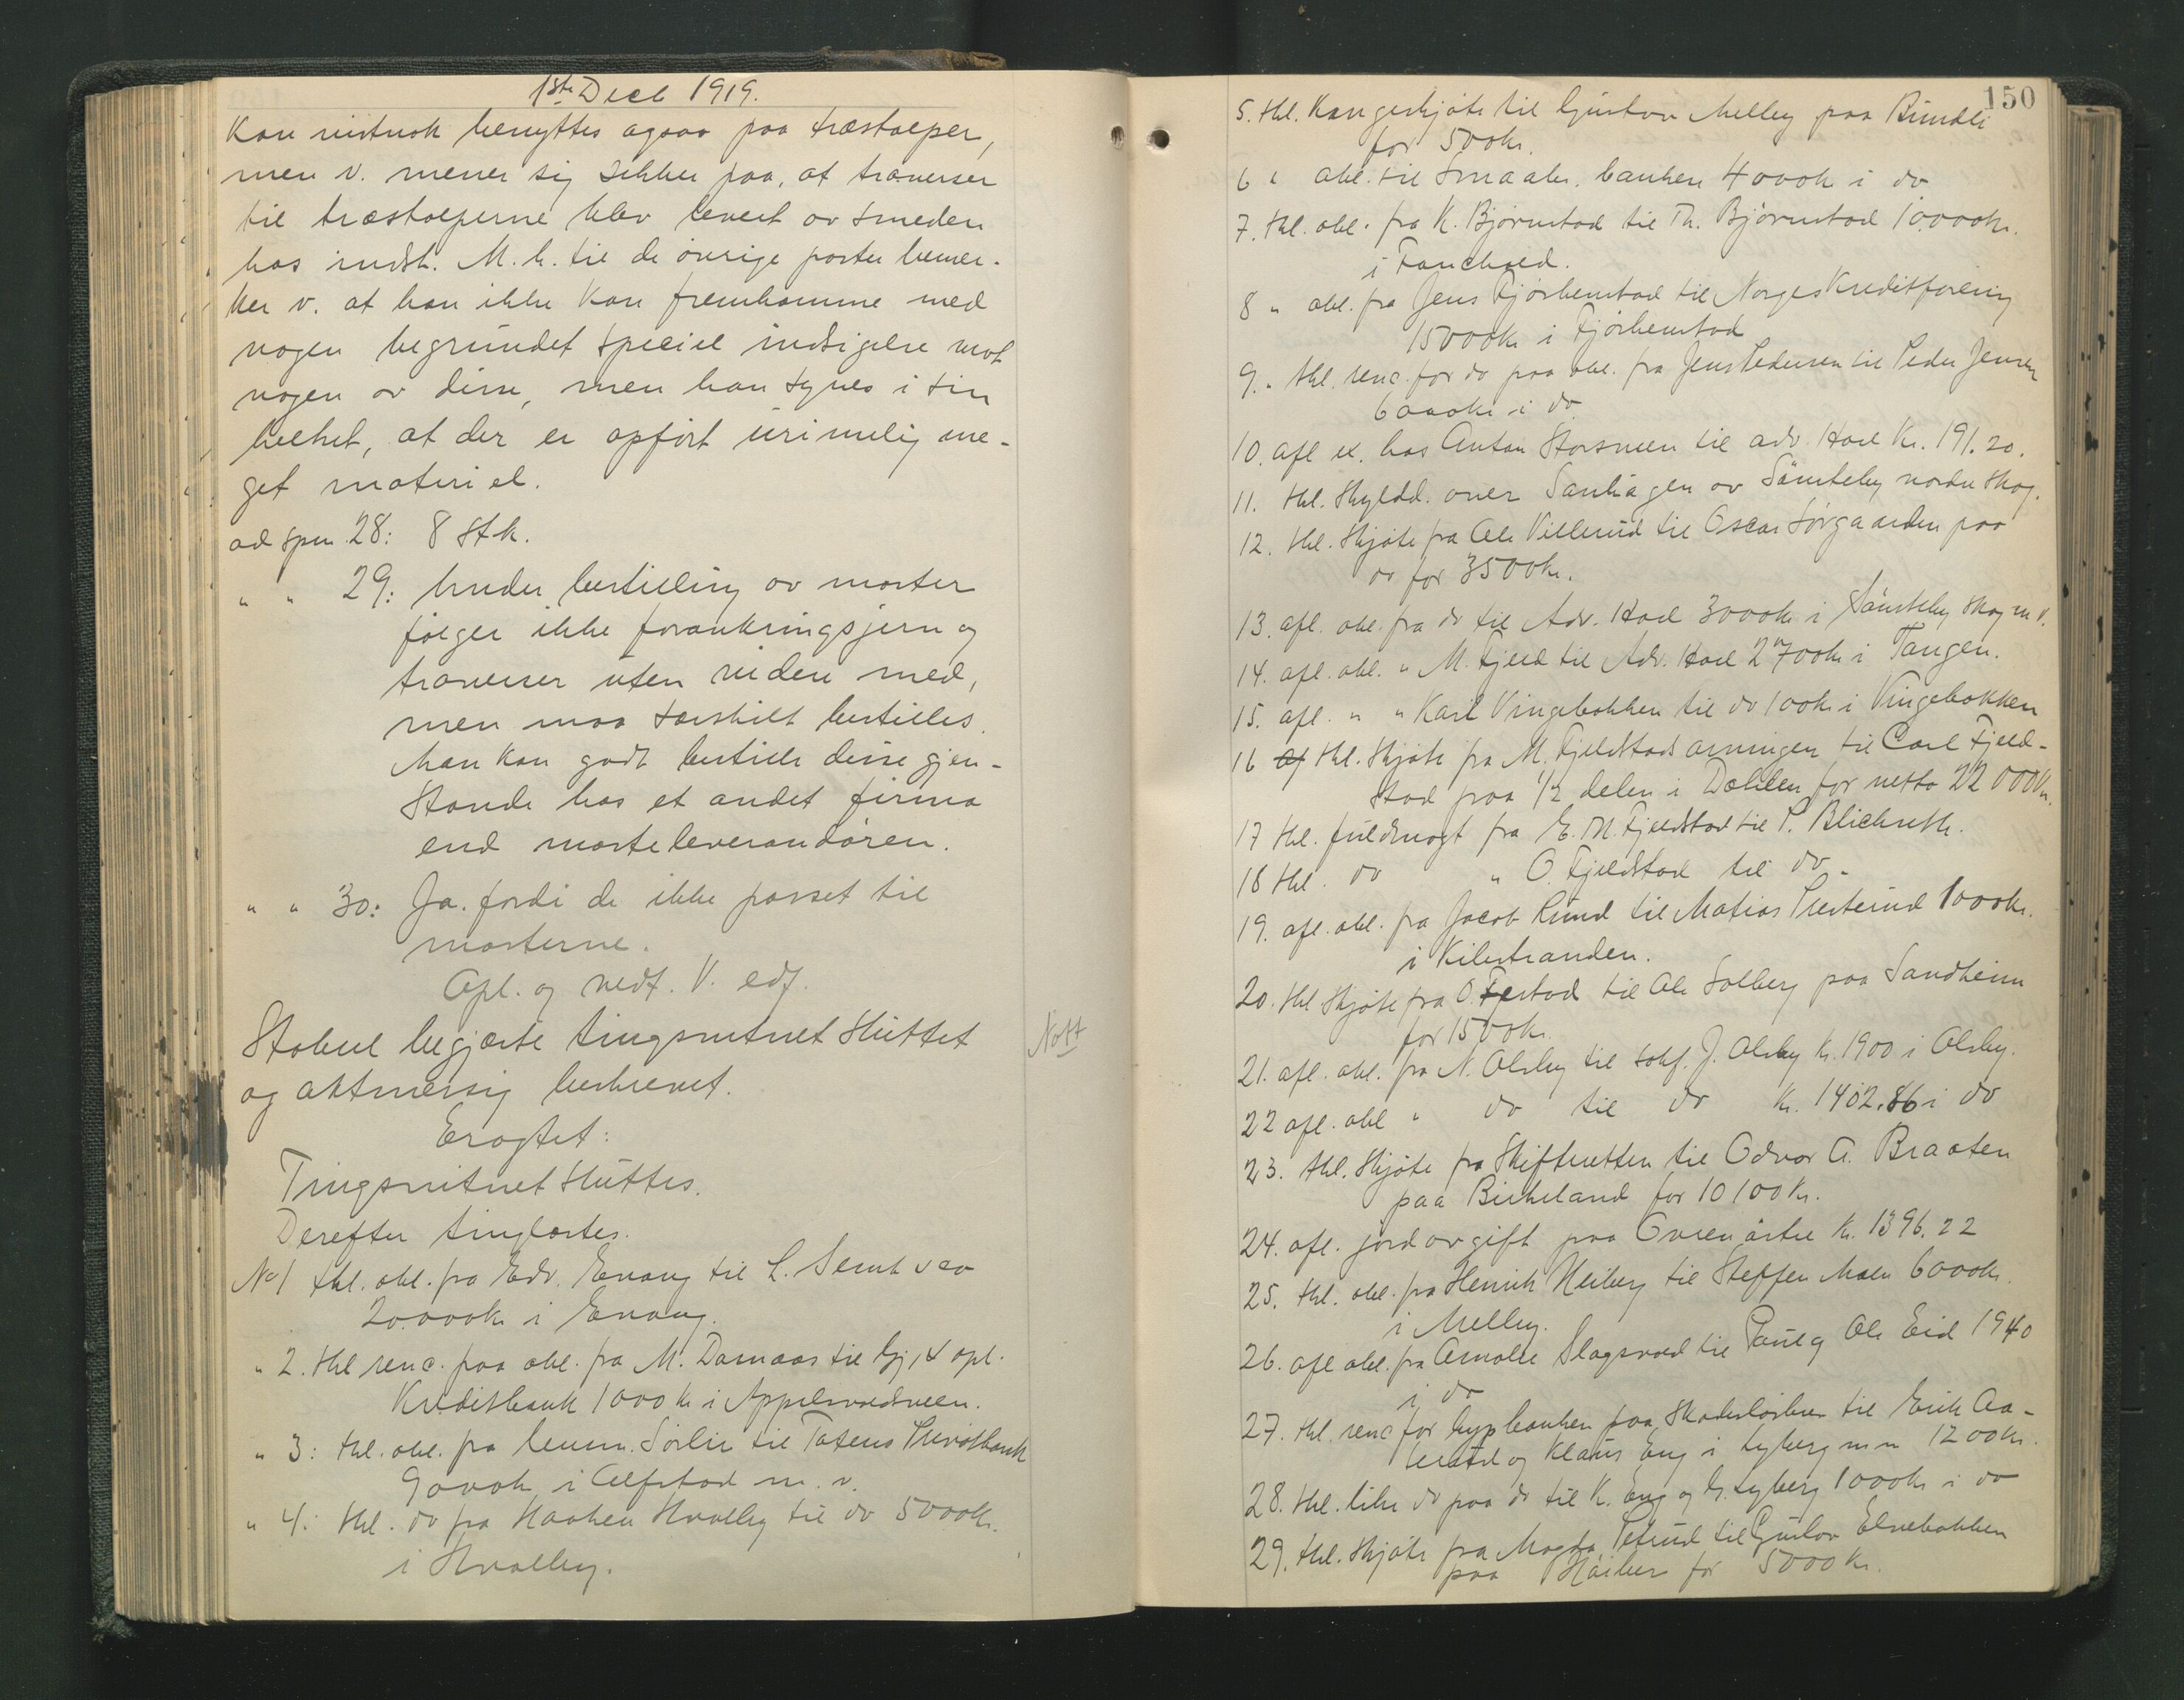 1ste Decb 1919.
Kan vistnok benyttes ogsaa paa træstolper,
men v. mener sig sikker paa, at traverser
til træstolperne blev levert av smeden
hos indst. M. h. til de övrige poster bemer-
ker v. at han ikke kan fremkomme med
nogen begrundet speciel indsigelse mot
nogen av disse, men han synes i sin
helhet, at der er opfört urimelig me-
get materiel.
ad spm. 28: 8 stk.
" " 29: Under bestilling av master
fölger ikke forankringsjern og
traverser uten videre med,
men maa særskilt bestilles.
Man kan godt bestille disse gjen-
stande hos et andet firma
end masteleverandören.
" " 30: Ja. fordi de ikke passet til
masterne.
Opl. og vedt. V. edf.
begjærte tingsvitnet sluttet
Nott
og aktmessig beskrevet.
Eragtet:
Tingsvitnet sluttes.
Derefter tinglæstes.
No 1 thl. obl. fra Edv. Evang til L.
20.000 kr i Evang.
" 2. thl renc. paa obl. fra M. Damaas til Gj. & opl.
Kreditbank 1000 kr i
" 3: thl. obl. fra Sörlie til Totens Privatbank
9000 kr i Alfstad m. v.
" 4: thl. do fra Haaken Hvalby til do 5000 kr.
i Hvalby.
150
5. thl. Kongeskjöte til Gustav Melby paa Rundli
for 500 kr.
6 " obl. til Smaabr. banken 4000 kr i do
7. thl. obl. fra K. Björnstad til Th. Björnstad 10.000 kr.
i
8 " obl. fra Jens til Norges Kreditforening
15000 kr i
9. " thl. renc. for do paa obl. fra Jens Pedersen til Peder Jensen
6000 kr i do
10. afl ex. hos Anton Storsveen til adv. Hoel Kr. 191.20.
11. thl. Skyldd. over av Sönsteby nordre skog.
12. thl. Skjöte fra Ole Villerud til Oscar Sörgaarden paa
do for 3500 kr.
13. afl. obl. fra do til Adv. Hoel 3000 kr i Sönsteby skog m v.
14. afl. obl. " M. Fjeld til Adv. Hoel 2700 kr i Tangen.
15. afl. " " Karl Vingebakken til do 100 kr i Vingebakken
16 af thl. Skjöte fra M. Fjeldstads arvinger til Carl Fjeld-
stad paa 1/2 delen i Dahlen for netto 22000 kr.
17 thl. fuldmagt fra E. M. Fjeldstad til P. Blichfeldt.
18 thl. do " O. Fjeldstad til do.
19. afl. obl. fra Jacob Rund til Matias Presterud 1000 kr.
i Kilestranden.
20. thl Skjöte fra O. til Ole Solberg paa Sandheim
for 1500 kr.
21. afl. obl. fra N. Alsby til sakf. J. Alsby kr. 1900 i Alsby.
22 afl. obl " do til do kr. 1402.86 i do
23. thl. Skjöte fra Skifteretten til Odvar A. Braaten
paa Birkeland for 10100 kr.
24. afl. jordavgift paa kr. 1396.22
25. thl. obl. fra Henrik Heiberg til Steffen Moen 6000 kr.
i Melby.
26. afl obl. fra Arnolt Slagsvold til Paul og Ole Eid 1940
i do
27. thl. renc for hypbanken paa Skadeslösbrev til Erik Aa-
og Klaus Eng i Lyberg m m 1200 kr.
28. thl. like do paa do til K. Eng og G. Lyberg 1000 kr i do
29. thl. Skjöte fra Magda til Gustav Elvebakken
paa for 5000 kr.